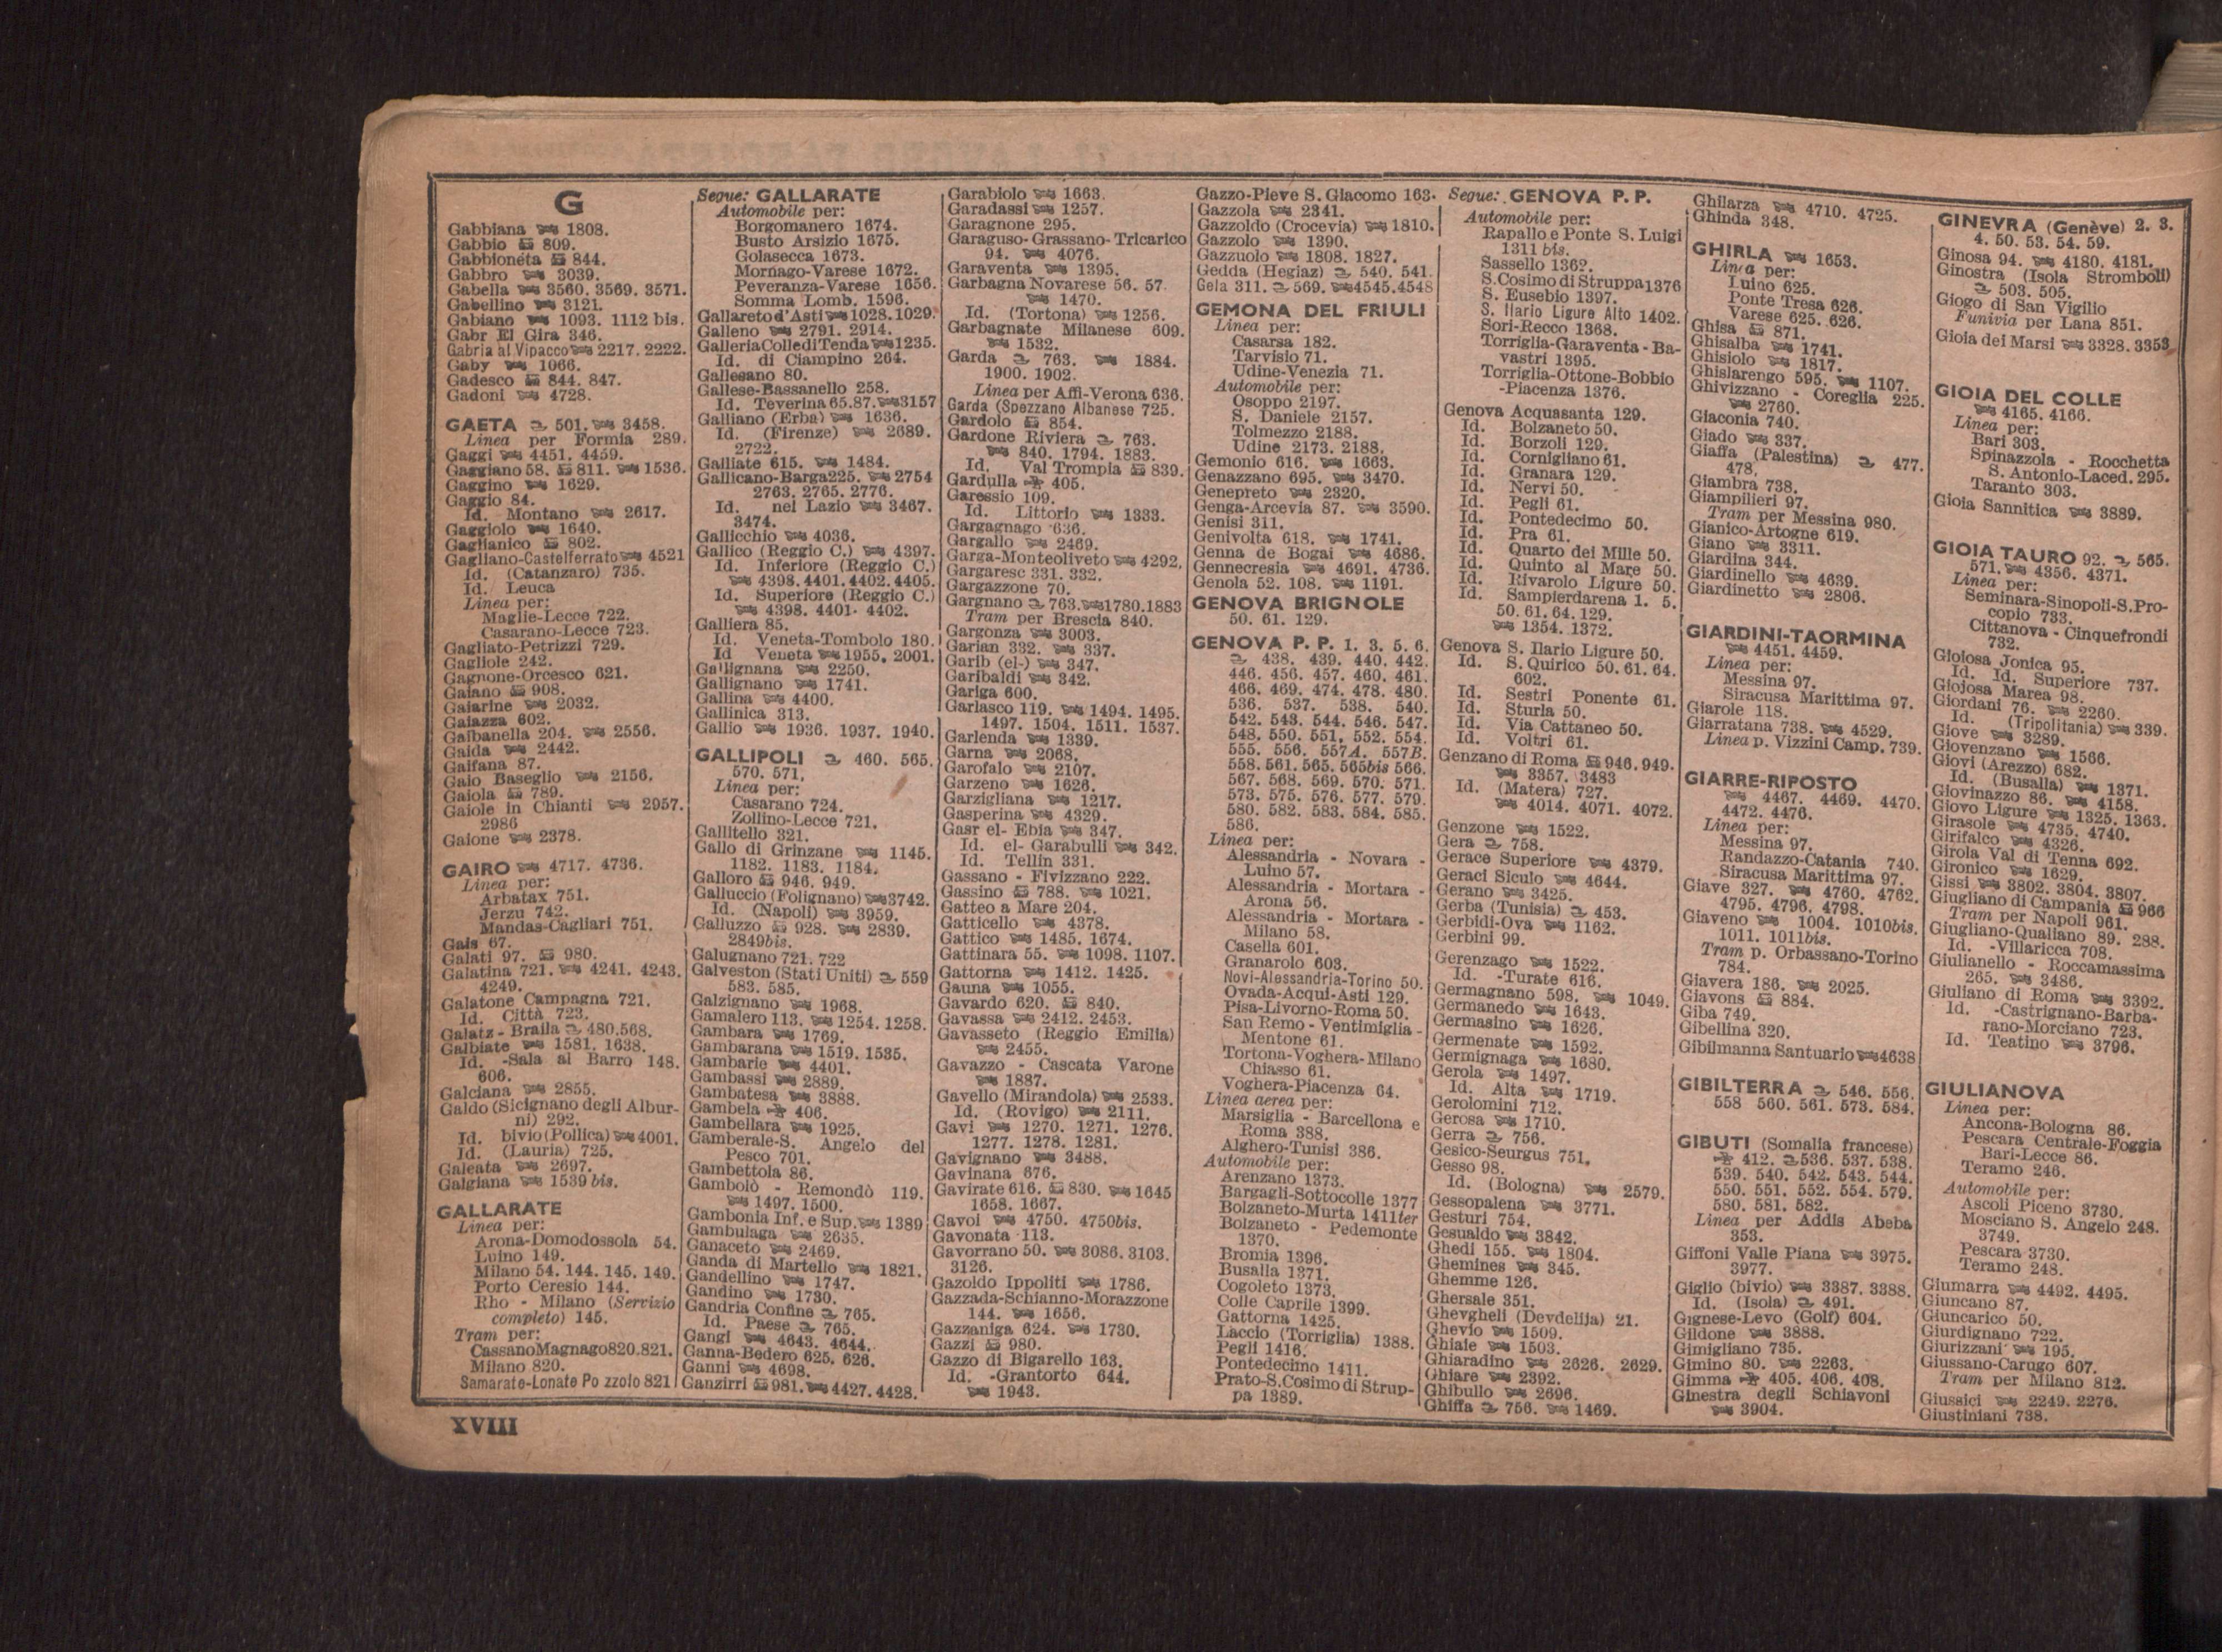 G
Gabbiana 1808.
Gabbio 809.
Gabbioneta 844.
Gabbro 3039.
Gabella 3560. 3569. 3571.
Gabellino 3121.
Gabiano 1093. 1112 bis.
Gabr El Gira 346.
Gabria al Vipacco 2217. 2222.
Gaby 1066.
Gadesco 844. 847.
Gadoni 4728.
GAETA 501. 3458.
Linea per Formia 289.
Gaggi 4451. 4459.
Gaggiano 58. 811. 1536.
Gaggino 1629.
Gaggio 84.
Id. Montano 2617.
Gaggiolo 1640.
Gaglianico 802.
Gagliano-Castelferrato 4521
Id. (Catanzaro) 735.
Id. Leuca
Linea per:
Maglie-Lecce 722.
Casarano-Lecce 723.
Gagliato-Petrizzi 729.
Gagliole 242.
Gagnone-Orcesco 621.
Gaiano 908.
Gaiarine 2032.
Gaiazza 602.
Gaibanella 204. 2556.
Gaida 2442.
Gaifana 87.
Gaio Baseglio 2156.
Gaiola 789.
Gaiole in Chianti 2957.
2986
Gaione 2378.
GAIRO 4717. 4736.
Linea per:
Arbatax 751.
Jerzu 742.
Mandas-Cagliari 751.
Gais 67.
Galati 97. 980.
Galatina 721. 4241. 4243.
4249.
Galatone Campagna 721.
Id. Città 723.
Galatz - Braila 480.568.
Galbiate 1581. 1638.
Id. -Sala al Barro 148.
606.
Galciana 2855.
Galdo (Sicignano degli Albur-
ni) 292.
Id. bivio (Pollica) 4001.
Id. (Lauria) 725.
Galeata 2697.
Galgiana 1539 bis.
GALLARATE
Linea per:
Arona-Domodossola 54.
Luino 149.
Milano 54. 144. 145. 149.
Porto Ceresio 144.
Rho - Milano (Servizio
completo) 145.
Tram per:
CassanoMagnago820.821.
Milano 820.
Samarate-Lonate Po zzolo 821
XVIII
Segue: GALLARATE
Automobile per:
Borgomanero 1674.
Busto Arsizio 1675.
Golasecca 1673.
Mornago-Varese 1672.
Peveranza-Varese 1656.
Somma Lomb. 1596.
Gallareto d'Asti 1028. 1029.
Galleno 2791. 2914.
Galleria Colle di Tenda 1235.
Id. di Ciampino 264.
Gallesano 80.
Gallese-Bassanello 258.
Id. Teverina 65.87. 3157
Galliano (Erba) 1636.
Id. (Firenze) 2689.
2722.
Galliate 615. 1484.
Gallicano-Barga225. 2754
2763. 2765. 2776.
Id. nel Lazio 3467.
3474.
Gallicchio 4036.
Gallico (Reggio C.) 4397.
Id. Inferiore (Reggio C.)
4398. 4401. 4402. 4405.
Id. Superiore (Reggio C.)
4398. 4401. 4402.
Galliera 85.
Id. Veneta-Tombolo 180.
Id Veneta 1955. 2001.
Gallignana 2250.
Gallignano 1741.
Gallina 4400.
Gallinica 313.
Gallio 1936. 1937. 1940.
GALLIPOLI 460. 565.
570. 571.
Linea per:
Casarano 724.
Zollino-Lecce 721.
Gallitello 321.
Gallo di Grinzane 1145.
1182. 1183. 1184.
Galloro 946. 949.
Galluccio (Folignano) 3742.
Id. (Napoli) 3959.
Galluzzo 928. 2839.
2849bis.
Galugnano 721. 722
Galveston (Stati Uniti) 559
583. 585.
Galzignano 1968.
Gamalero 113. 1254. 1258.
Gambara 1769.
Gambarana 1519. 1535.
Gambarie 4401.
Gambassi 2889.
Gambatesa 3888.
Gambela 406.
Gambellara 1925.
Gamberale-S. Angelo del
Pesco 701.
Gambettola 86.
Gambolò - Remondò 119.
1497. 1500.
Gambonia Inf. e Sup. 1389
Gambulaga 2635.
Ganaceto 2469.
Ganda di Martello 1821.
Gandellino 1747.
Gandino 1730.
Gandria Confine 765.
Id. Paese 765.
Gangi 4643. 4644.
Ganna-Bedero 625. 626.
Ganni 4698.
Ganzirri 981. 4427. 4428.
Garabiolo 1663.
Garadassi 1257.
Garagnone 295.
Garaguso-Grassano-Tricarico
94. 4076.
Garaventa 1395.
Garbagna Novarese 56. 57.
1470.
Id. (Tortona) 1256.
Garbagnate Milanese 609.
1532.
Garda 763. 1884.
1900. 1902.
Linea per Affi-Verona 636.
Garda (Spezzano Albanese 725.
Gardolo 854.
Gardone Riviera 763.
840. 1794. 1883.
Id. Val Trompia 839.
Gardulla 405.
Garessio 109.
Id. Littorio 1333.
Gargagnago 636.
Gargallo 2469.
Garga-Monteoliveto 4292.
Gargaresc 331. 332.
Gargazzone 70.
Gargnano 763. 1780.1883
Tram per Brescia 840.
Gargonza 3003.
Garian 332. 337.
Garib (el-) 347.
Garibaldi 342.
Gariga 600.
Garlasco 119. 1494. 1495.
1497. 1504. 1511. 1537.
Garlenda 1339.
Garna 2068.
Garofalo 2107.
Garzeno 1626.
Garzigliana 1217.
Gasperina 4329.
Gasr el- Ebia 347.
Id. el- Garabulli 342.
Id. Tellin 331.
Gassano - Fivizzano 222.
Gassino 788. 1021.
Gatteo a Mare 204.
Gatticello 4378.
Gattico 1485. 1674.
Gattinara 55. 1098. 1107.
Gattorna 1412. 1425.
Gauna 1055.
Gavardo 620. 840.
Gavassa 2412. 2453.
Gavasseto (Reggio Emilia)
2455.
Gavazzo - Cascata Varone
1887.
Gavello (Mirandola) 2533.
Id. (Rovigo) 2111.
Gavi 1270. 1271. 1276.
1277. 1278. 1281.
Gavignano 3488.
Gavinana 676.
Gavirate 616. 830. 1645
1658. 1667.
Gavoi 4750. 4750bis.
Gavonata 113.
Gavorrano 50. 3086. 3103.
3126.
Gazoldo Ippoliti 1786.
Gazzada-Schianno-Morazzone
144. 1656.
Gazzaniga 624. 1730.
Gazzi 980.
Gazzo di Bigarello 163.
Id. -Grantorto 644.
1943.
Gazzo-Pieve S. Giacomo 163.
Gazzola 2341.
Gazzoldo (Crocevia) 1810.
Gazzolo 1390.
Gazzuolo 1808. 1827.
Gedda (Hegiaz) 540. 541.
Gela 311. 569. 4545.4548
GEMONA DEL FRIULI
Linea per:
Casarsa 182.
Tarvisio 71.
Udine-Venezia 71.
Automobile per:
Osoppo 2197.
S. Daniele 2157.
Tolmezzo 2188.
Udine 2173. 2188.
Gemonio 616. 1663.
Genazzano 695. 3470.
Genepreto 2320.
Genga-Arcevia 87. 3590.
Genisi 311.
Genivolta 618. 1741.
Genna de Bogai 4686.
Gennecresia 4691. 4736.
Genola 52. 108. 1191.
GENOVA BRIGNOLE
50. 61. 129.
GENOVA P. P. 1. 3. 5. 6.
438. 439. 440. 442.
446. 456. 457. 460. 461.
466. 469. 474. 478. 480.
536. 537. 538. 540.
542. 543. 544. 546. 547.
548. 550. 551. 552. 554.
555. 556. 557A. 557B.
558. 561. 565. 565bis 566.
567. 568. 569. 570. 571.
573. 575. 576. 577. 579.
580. 582. 583. 584. 585.
586.
Linea per:
Alessandria - Novara -
Luino 57.
Alessandria - Mortara -
Arona 56.
Alessandria - Mortara -
Milano 58.
Casella 601.
Granarolo 603.
Novi-Alessandria-Torino 50.
Ovada-Acqui-Asti 129.
Pisa-Livorno-Roma 50.
San Remo - Ventimiglia -
Mentone 61.
Tortona-Voghera-Milano
Chiasso 61.
Voghera-Piacenza 64.
Linea aerea per:
Marsiglia - Barcellona e
Roma 388.
Alghero-Tunisi 386.
Automobile per:
Arenzano 1373.
Bargagli-Sottocolle 1377
Bolzaneto-Murta 1411ter
Bolzaneto - Pedemonte
1370.
Bromia 1396.
Busalla 1371.
Cogoleto 1373.
Colle Caprile 1399.
Gattorna 1425.
Laccio (Torriglia) 1388.
Pegli 1416.
Pontedecimo 1411.
Prato-S.Cosimo di Strup-
pa 1389.
Segue: GENOVA P. P.
Automobile per:
Rapallo e Ponte S. Luigi
1311 bis.
Sassello 1362.
S.Cosimo di Struppa1376
S. Eusebio 1397.
S. Ilario Ligure Alto 1402.
Sori-Recco 1368.
Torriglia-Garaventa - Ba-
vastri 1395.
Torriglia-Ottone-Bobbio
-Piacenza 1376.
Genova Acquasanta 129.
Id. Bolzaneto 50.
Id. Borzoli 129.
Id. Cornigliano 61.
Id. Granara 129.
Id. Nervi 50.
Id. Pegli 61.
Id. Pontedecimo 50.
Id. Pra 61.
Id. Quarto dei Mille 50.
Id. Quinto al Mare 50.
Id. Rivarolo Ligure 50.
Id. Sampierdarena 1. 5.
50. 61. 64. 129.
1354. 1372.
Genova S. Ilario Ligure 50.
Id. S. Quirico 50. 61. 64.
602.
Id. Sestri Ponente 61.
Id. Sturla 50.
Id. Via Cattaneo 50.
Id. Voltri 61.
Genzano di Roma 946. 949.
3357. 3483
Id. (Matera) 727.
4014. 4071. 4072.
Genzone 1522.
Gera 758.
Gerace Superiore 4379.
Geraci Siculo 4644.
Gerano 3425.
Gerba (Tunisia) 453.
Gerbidi-Ova 1162.
Gerbini 99.
Gerenzago 1522.
Id. -Turate 616.
Germagnano 598. 1049.
Germanedo 1643.
Germasino 1626.
Germenate 1592.
Germignaga 1680.
Gerola 1497.
Id. Alta 1719.
Gerolomini 712.
Gerosa 1710.
Gerra 756.
Gesico-Seurgus 751.
Gesso 98.
Id. (Bologna) 2579.
Gessopalena 3771.
Gesturi 754.
Gesualdo 3842.
Ghedi 155. 1804.
Ghemines 345.
Ghemme 126.
Ghersale 351.
Ghevgheli (Devdelija) 21.
Ghevio 1509.
Ghiaie 1503.
Ghiaradino 2626. 2629.
Ghiare 2392.
Ghibullo 2696.
Ghiffa 756. 1469.
Ghilarza 4710. 4725.
Ghinda 348.
GHIRLA 1653.
Linea per:
Luino 625.
Ponte Tresa 626.
Varese 625. 626.
Ghisa 871.
Ghisalba 1741.
Ghisiolo 1817.
Ghislarengo 595. 1107.
Ghivizzano - Coreglia 225.
2760.
Giaconia 740.
Giado 337.
Giaffa (Palestina) 477.
478.
Giambra 738.
Giampilieri 97.
Tram per Messina 980.
Gianico-Artogne 619.
Giano 3311.
Giardina 344.
Giardinello 4639.
Giardinetto 2806.
GIARDINI-TAORMINA
4451. 4459.
Linea per:
Messina 97.
Siracusa Marittima 97.
Giarole 118.
Giarratana 738. 4529.
Linea p. Vizzini Camp. 739.
GIARRE-RIPOSTO
4467. 4469. 4470.
4472. 4476.
Linea per:
Messina 97.
Randazzo-Catania 740.
Siracusa Marittima 97.
Giave 327. 4760. 4762.
4795. 4796. 4798.
Giaveno 1004. 1010bis.
1011. 1011bis.
Tram p. Orbassano-Torino
784.
Giavera 186. 2025.
Giavons 884.
Giba 749.
Gibellina 320.
Gibilmanna Santuario 4638
GIBILTERRA 546. 556.
558 560. 561. 573. 584.
GIBUTI (Somalia francese)
412. 536. 537. 538.
539. 540. 542. 543. 544.
550. 551. 552. 554. 579.
580. 581. 582.
Linea per Addis Abeba
353.
Giffoni Valle Piana 3975.
3977.
Giglio (bivio) 3387. 3388.
Id. (Isola) 491.
Gignese-Levo (Golf) 604.
Gildone 3888.
Gimigliano 735.
Gimino 80. 2263.
Gimma 405. 406. 408.
Ginestra degli Schiavoni
3904.
GINEVRA (Genève) 2. 3.
4. 50. 53. 54. 59.
Ginosa 94. 4180. 4181.
Ginostra (Isola Stromboli)
503. 505.
Giogo di San Vigilio
Funivia per Lana 851.
Gioia dei Marsi 3328. 3353
GIOIA DEL COLLE
4165. 4166.
Linea per:
Bari 303.
Spinazzola - Rocchetta
S. Antonio-Laced. 295.
Taranto 303.
Gioia Sannitica 3889.
GIOIA TAURO 92. 565.
571. 4356. 4371.
Linea per:
Seminara-Sinopoli-S.Pro-
copio 733.
Cittanova - Cinquefrondi
732.
Gioiosa Jonica 95.
Id. Id. Superiore 737.
Giojosa Marea 98.
Giordani 76. 2260.
Id. (Tripolitania) 339.
Giove 3289.
Giovenzano 1566.
Giovi (Arezzo) 682.
Id. (Busalla) 1371.
Giovinazzo 86. 4158.
Giovo Ligure 1325. 1363.
Girasole 4735. 4740.
Girifalco 4326.
Girola Val di Tenna 692.
Gironico 1629.
Gissi 3802. 3804. 3807.
Giugliano di Campania 966
Tram per Napoli 961.
Giugliano-Qualiano 89. 288.
Id. -Villaricca 708.
Giulianello - Roccamassima
265. 3486.
Giuliano di Roma 3392.
Id. -Castrignano-Barba-
rano-Morciano 723.
Id. Teatino 3796.
GIULIANOVA
Linea per:
Ancona-Bologna 86.
Pescara Centrale-Foggia
Bari-Lecce 86.
Teramo 246.
Automobile per:
Ascoli Piceno 3730.
Mosciano S. Angelo 248.
3749.
Pescara 3730.
Teramo 248.
Giumarra 4492. 4495.
Giuncano 87.
Giuncarico 50.
Giurdignano 722.
Giurizzani 195.
Giussano-Carugo 607.
Tram per Milano 812.
Giussici 2249. 2276.
Giustiniani 738.